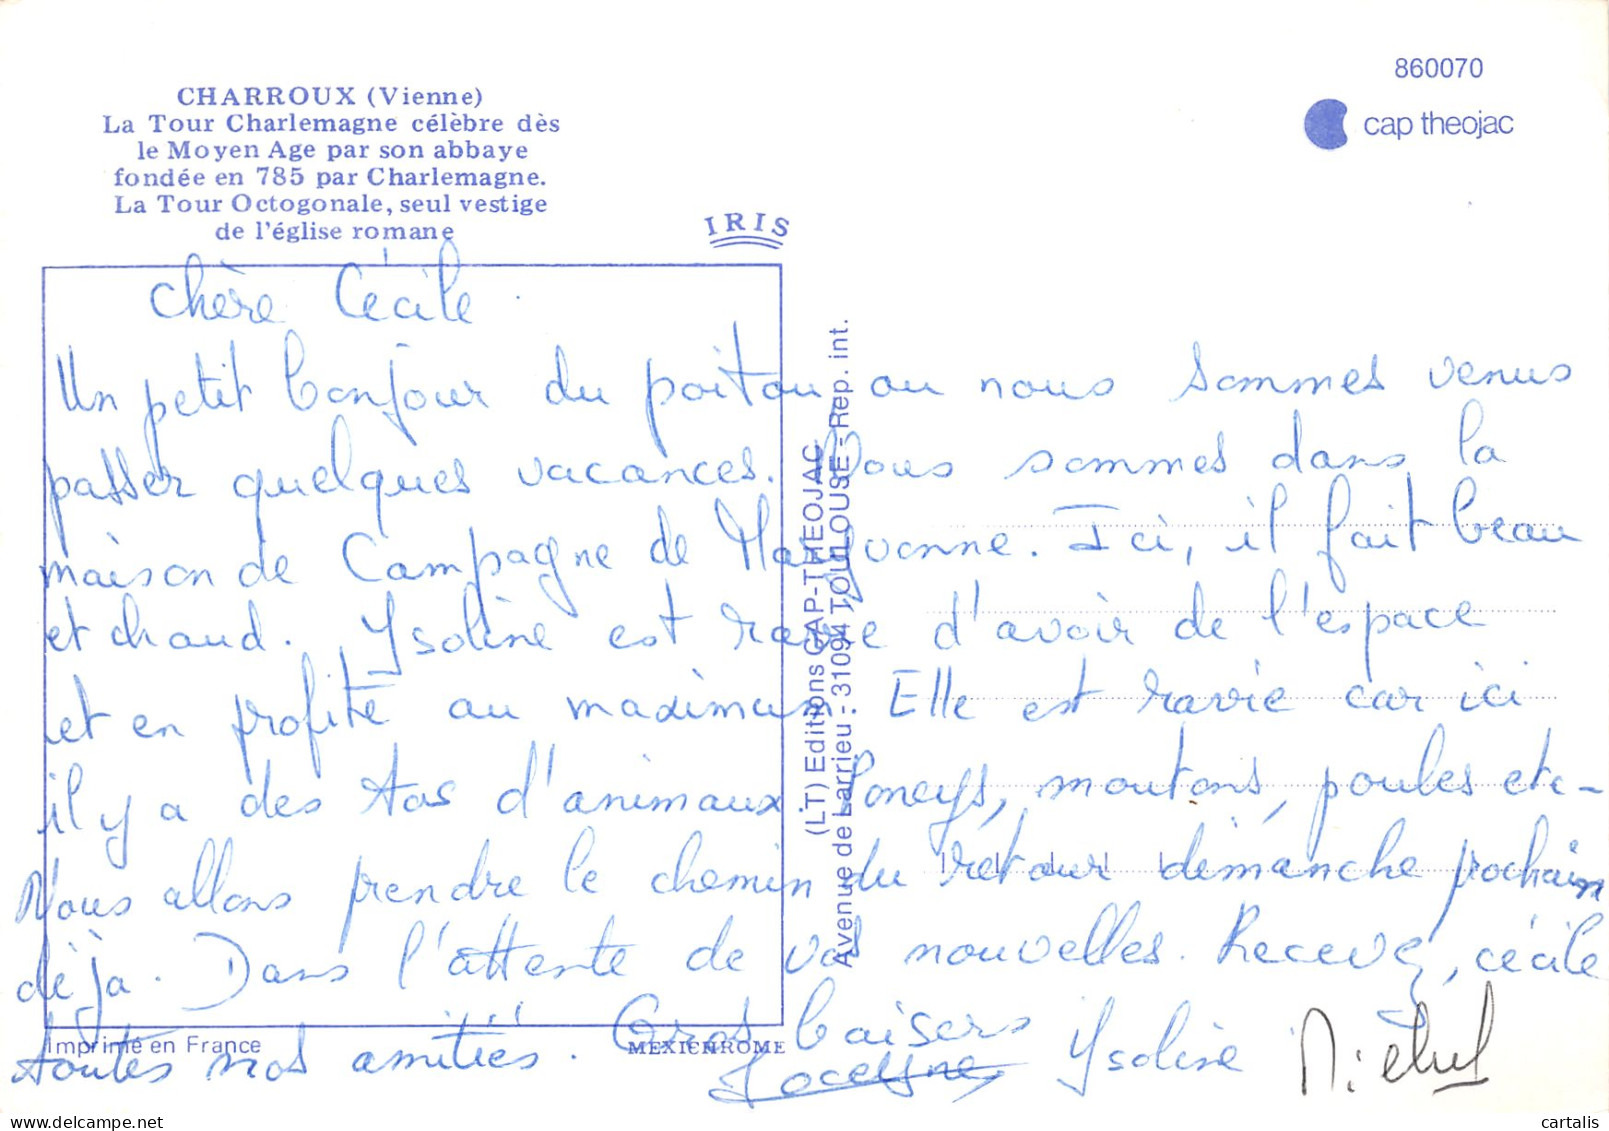 860070
cap theojac
CHARROUX (Vienne)
La Tour Charlemagne célèbre dès
le Moyen Age par son abbaye
fondée en 785 par Charlemagne.
La Tour Octogonale, seul vestige
de l'église romane
IRIS
(LT) Editions CAP-THEOJAC
Avenue de Larrieu - 31094 TOULOUSE - Rep. int.
Chère Cécile
Un petit bonjour du poitou ou nous sommes venus
passer quelques vacances. Nous sommes dans la
maison de Campagne de Maryvonne. Ici, il fait beau
et chaud. Ysoline est ravie d'avoir de l'espace
et en profite au maximum. Elle est ravie car ici
il y a des tas d'animaux Poneys, moutons, poules etc-
Nous allons prendre le chemin du retour dimanche prochain
déjà. Dans l'attente de vos nouvelles. Recevez, cécile
toutes nos amitiés. Gros baisers Ysoline Michel
Jocelyne
Imprimé en France
MEXICHROME
cartalis